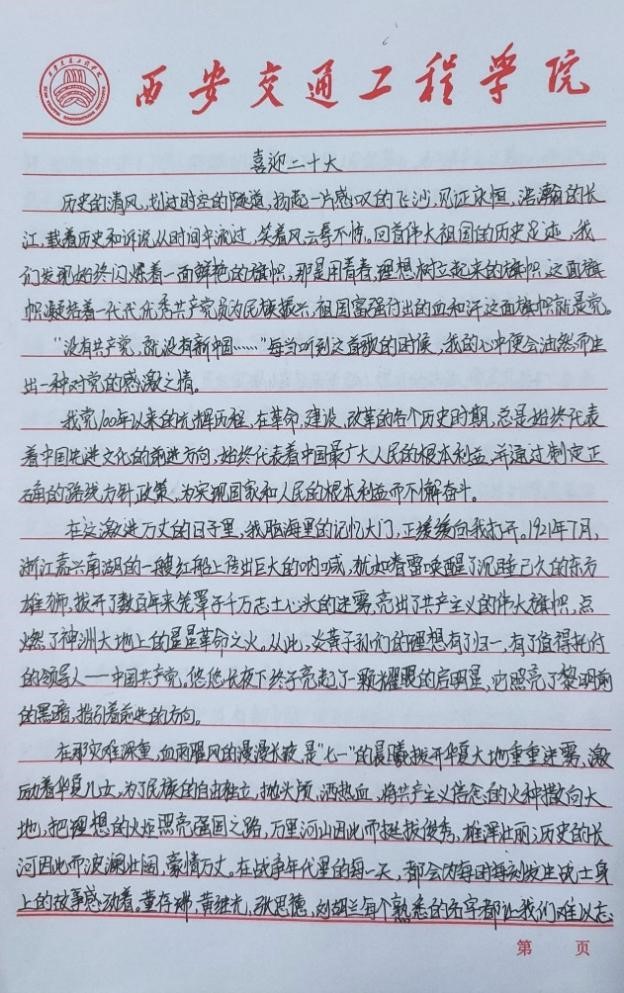 西安交通工程学院
喜迎二十大
历史的清风,划过时空的隧道,扬起一片感叹的飞沙,见证永恒,浩瀚的长
江,载着历史和诉说从时间中流过,笑着风云辱不惊。回首伟大祖国的历史足迹,我
们发现始终闪耀着一面鲜艳的旗帜,那是用青春,理想树立起来的旗帜,这面旗
帜凝结着一代代优秀共产党员为民族振兴,祖国富强付出的血和汗这面旗帜就是党。
"没有共产党,就没有新中国……"每当听到这首歌的时候,我的心中便会油然而生
出一种对党的感激之情。
我党100年以来的光辉历程,在革命,建设,改革的各个历史时期,总是始终代表
着中国先进文化的前进方向,始终代表着中国最广大人民的根本利益,并通过制定正
确的路线方针政策,为实现国家和人民的根本利益而不懈奋斗。
在这激进万丈的日子里,我脑海里的记忆大门,正缓缓向我打开。1921年7月,
浙江嘉兴南湖的一艘红船上传出巨大的呐喊,犹如春雷唤醒了沉睡已久的东方
雄狮,拨开了数百年来笼罩于千万志士心头的迷雾,亮出了共产主义的伟大旗帜,点
燃了神洲大地上的星星革命之火。从此,炎黄子孙们的理想有了归一,有了值得托付
的领导人——中国共产党。悠悠长夜下终于亮起了一颗耀眼的启明星,它照亮了黎明前
的黑暗,指引着前进的方向。
在那灾难深重,血雨腥风的漫漫长夜,是"七一"的晨曦拨开华夏大地重重迷雾,激
励着华夏儿女,为了民族的自由独立,抛头颅,洒热血,将共产主义信念的火种撒向大
地,把理想的火炬照亮强国之路,万里河山因此而挺拔俊秀,雄浑壮丽;历史的长
河因此而波澜壮阔,豪情万丈。在战争年代里的每一天,都会为每时每刻发生战士身
上的故事感动着。董存瑞,黄继光,张思德,刘胡兰每个熟悉的名字都让我们难以忘
第 页